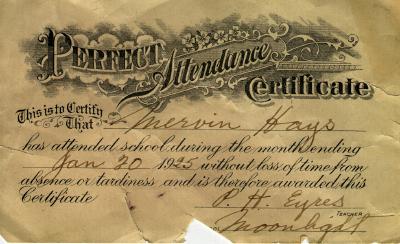 Perfect
Attendance
Certificate
This is to Certify
That Mervin Hays
has attended school during the month ending
Jan 20 1925 without loss of time from
absence or tardiness and is therefore awarded this
Certificate P. H. Eyres
TEACHER
of